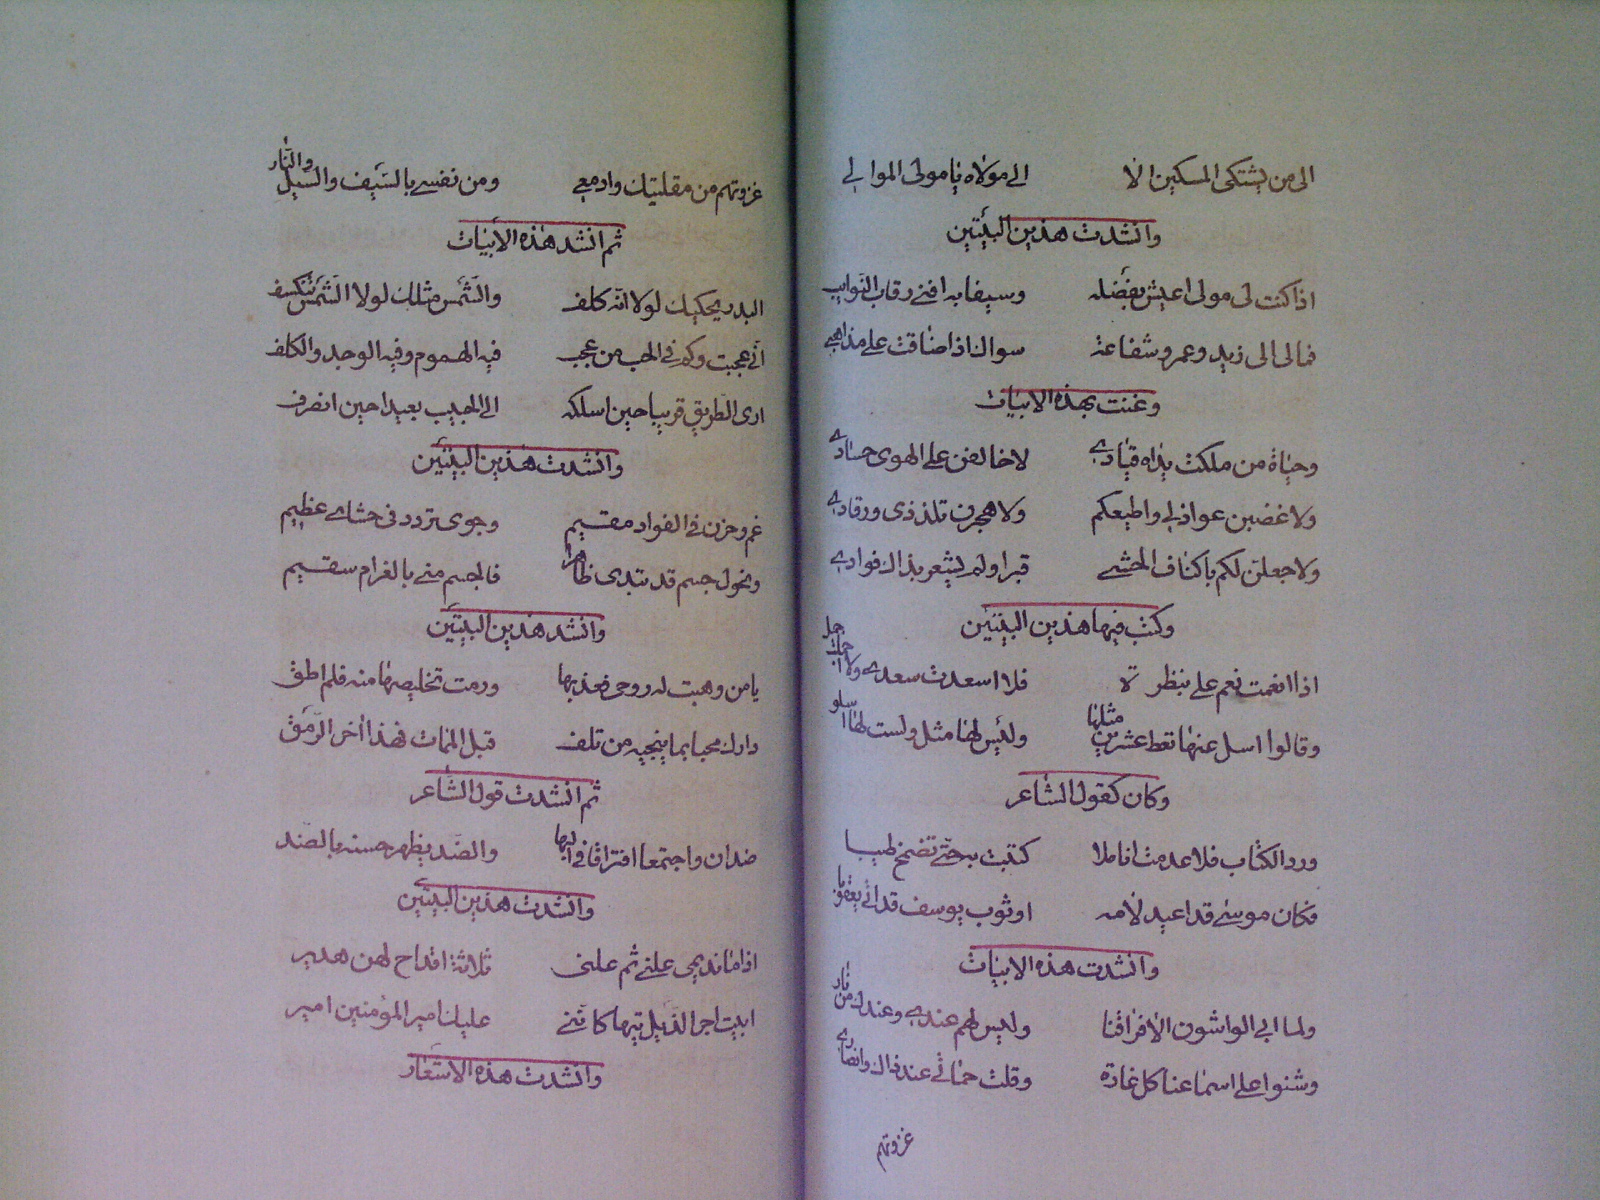 الى من يشتكى المسكين الا الى مولاه يا مولى الموالي
وانشدت هذين البيتين
اذا كنت لى مولى اعيش بفضله وسيفا به افنى رقاب النوايب
فمالى الى زيد وعمرو شفاعة سواك اذا ضاقت على مذاهبى
وغنت بهذه الابيات
وحياة من ملكت يداه قيادى لاخالفن على الهوى حسادى
ولاغضبن عواذلى واطيعكم ولاهجرن تلذذى ورقادى
ولاجعلن لكم باكناف الحشى قبرا ولم يشعر بذاك فوادى
وكتب فيها هذين البيتين
اذا انعمت نعم على بنظرة فلا اسعدت سعدى ولا اجملت جمل
وقالوا اسل عنها تعط عشرين مثلها وليس لها مثل ولست لها اسلو
وكان كقول الشاعر
ورد الكتاب فلا عدمت اناملا كتبت به حتى تضمخ طيبا
فكان موسى قد اعيد لامه او ثوب يوسف قد اتى يعقوبا
وانشدت هذه الابيات
ولما ابى الواشون الا فراقنا وليس لهم عندى وعندك من ثار
وشنوا على اسماعنا كل غارة وقلت حماتى عند ذاك وانصارى
غزوتهم
غزوتهم من مقلتيك وادمعى ومن نفسى بالسيف والسيل والنار
ثم انشد هذه الابيات
البدر يحكيك لولا انه كلف والشمس مثلك لولا الشمس تنكسف
انى عجبت وكم فى الحب من عجب فيه الهموم وفيه الوجد والكلف
ارى الطريق قريبا حين اسلكه الى الحبيب بعيدا حين انصرف
وانشدت هذين البيتين
غم وحزن فى الفواد مقيم وجوى تردد فى حشاى عظيم
ونحول جسم قد تبدى ظاهرا فالجسم منى بالغرام سقيم
وانشد هذين البيتين
يا من وهبت له روحى فعذبها ورمت تخليصها منه فلم اطق
دارك محبا بما ينجيه من تلف قبل الممات فهذا اخر الرمق
ثم انشدت قول الشاعر
ضدان واجتمعا افتراقا فى البها والضد يظهر حسنه بالضد
وانشدت هذين البيتين
اذا ما نديمى علنى ثم علنى ثلاثة اقداح لهن هدير
ابيت اجر الذيل تيها كاننى عليك امير المؤمنين امير
وانشدت هذه الاشعار